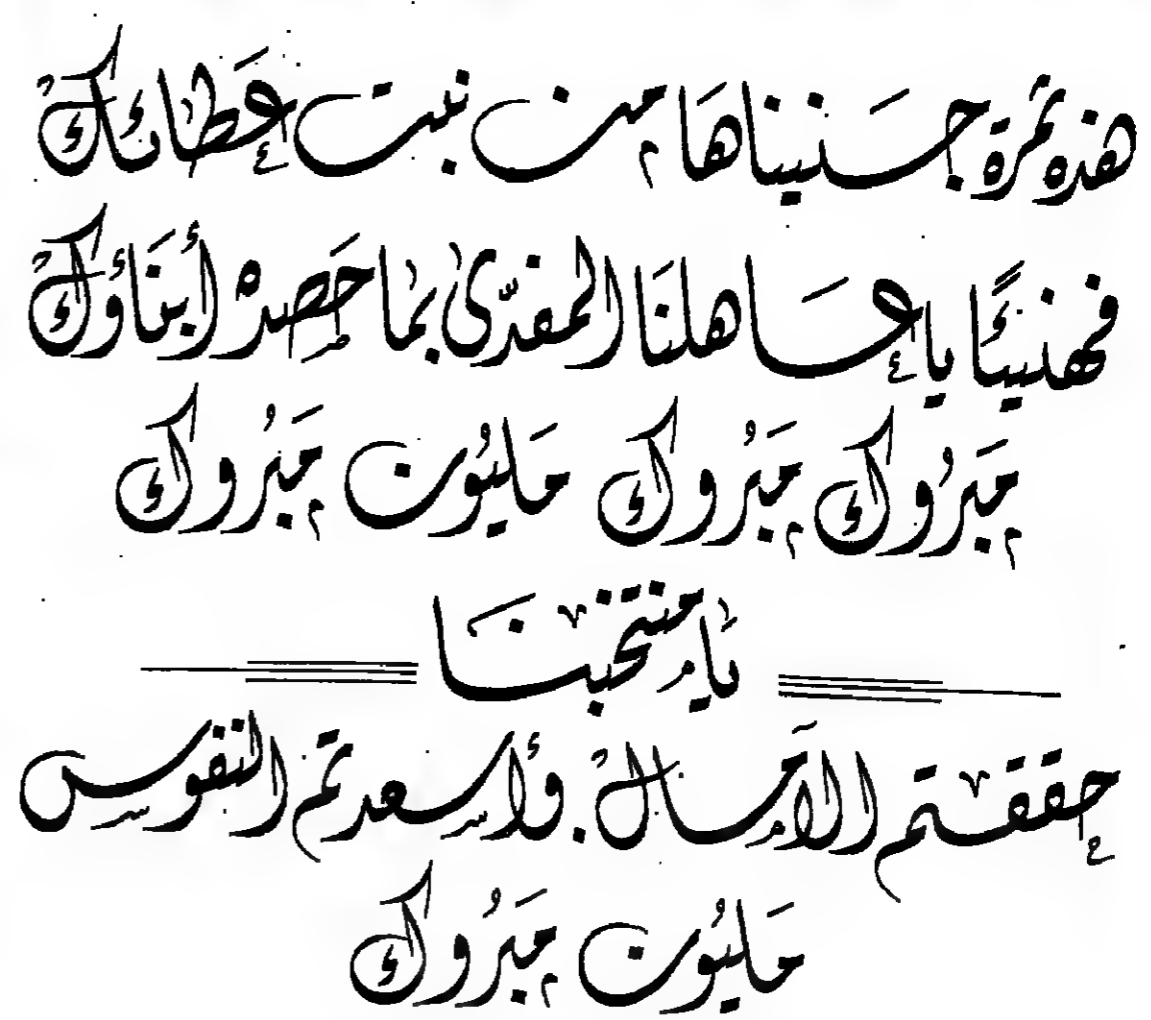 هذه ثمرة جنيناها من نبت عطائك
فهنيئًا يا عاهلنا المفدّى بما حصده أبناؤك
مَبرُوك مَبرُوك مَليُون مَبرُوك
يا منتخبنا
حققتم الآمال. وأسعدتم النفوس
مَليُون مَبرُوك